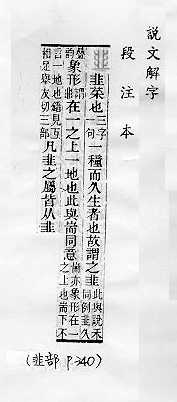 說文解字
段注本
韭 韭菜也三字一句一種而久生者也故謂之韭此與說禾同例韭久
疊韵象形謂非在一之上一地也此與耑同意耑亦象形在一之上也耑下不
言一地也錯見互相足舉友切三部凡韭之屬皆从韭
(韭部 P340)